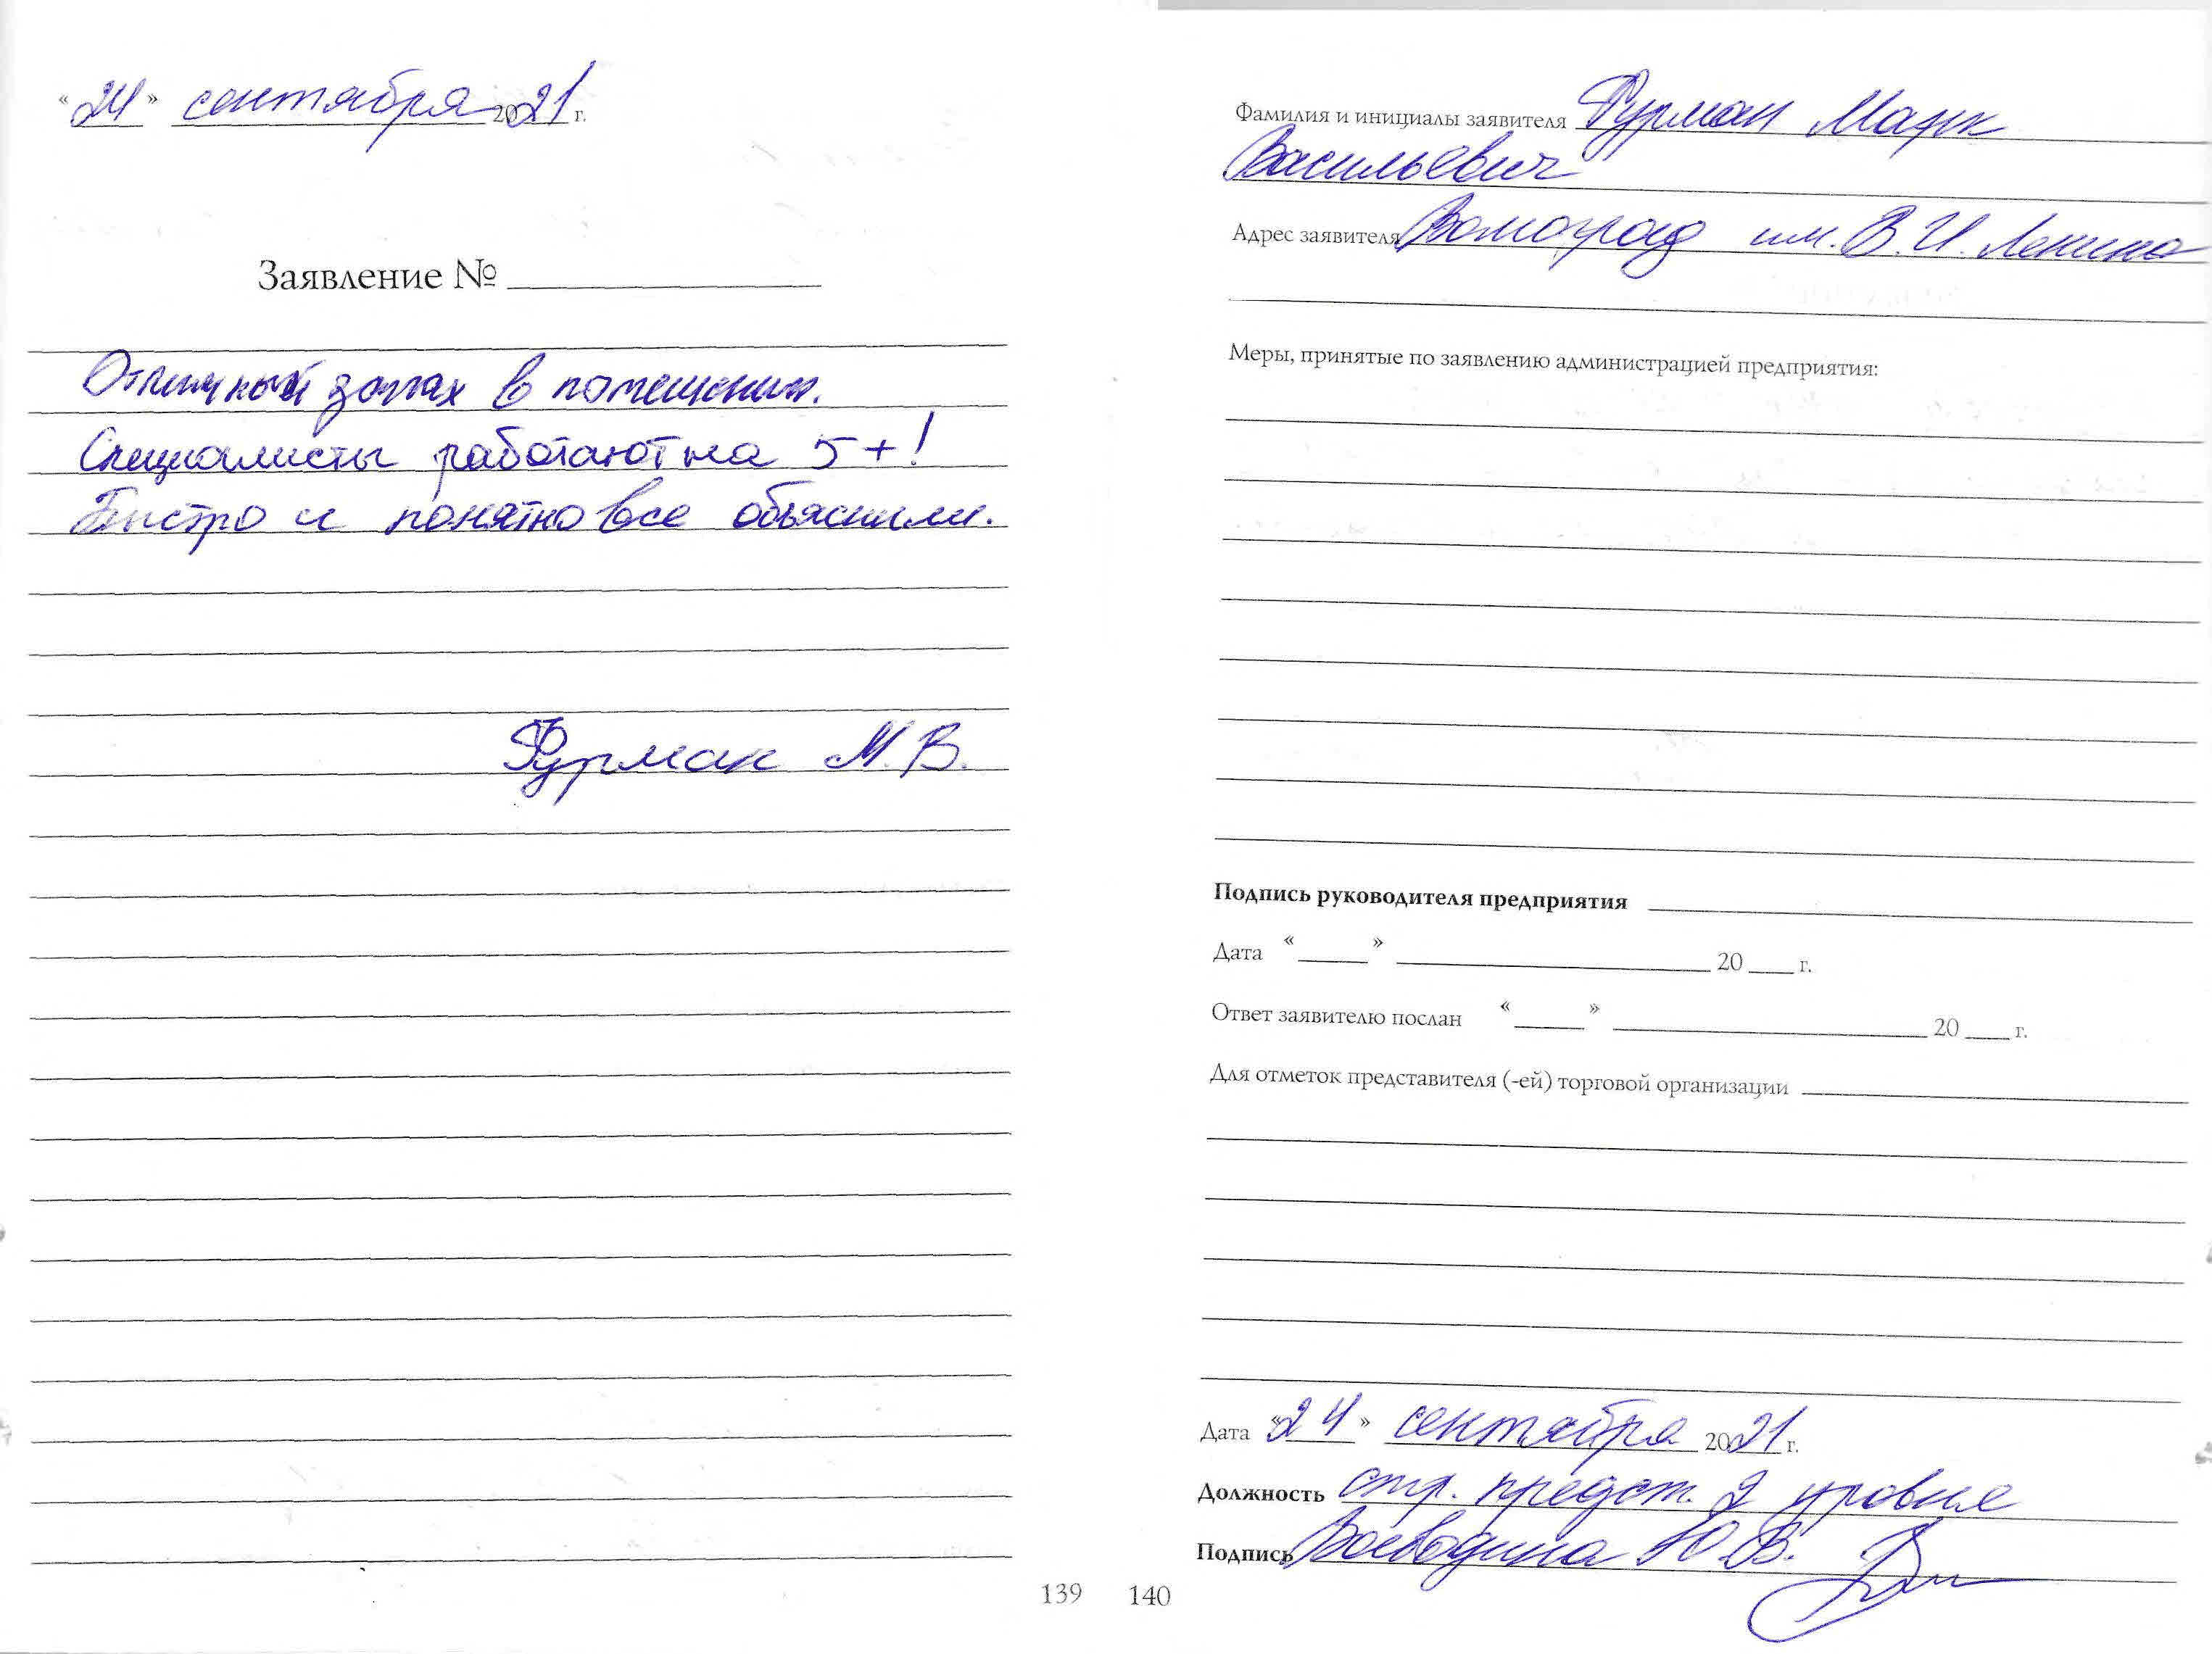 «24» сентября 2021 г.
Заявление №
Отличный запах в помещении.
Специалисты работают на 5+!
Быстро и понятно все объяснили.
Фурман М.В.
139
Фамилия и инициалы заявителя Фурман Марк
Васильевич
Адрес заявителя Волгоград им. В.И. Ленина
Меры, принятые по заявлению администрацией предприятия:
Подпись руководителя предприятия
Дата « » 20 г.
Ответ заявителю послан « » 20 г.
Для отметок представителя (-ей) торговой организации
Дата «24» сентября 2021 г.
Должность стр. предст. 2 уровня
Подпись Воеводина Ю.В.
140